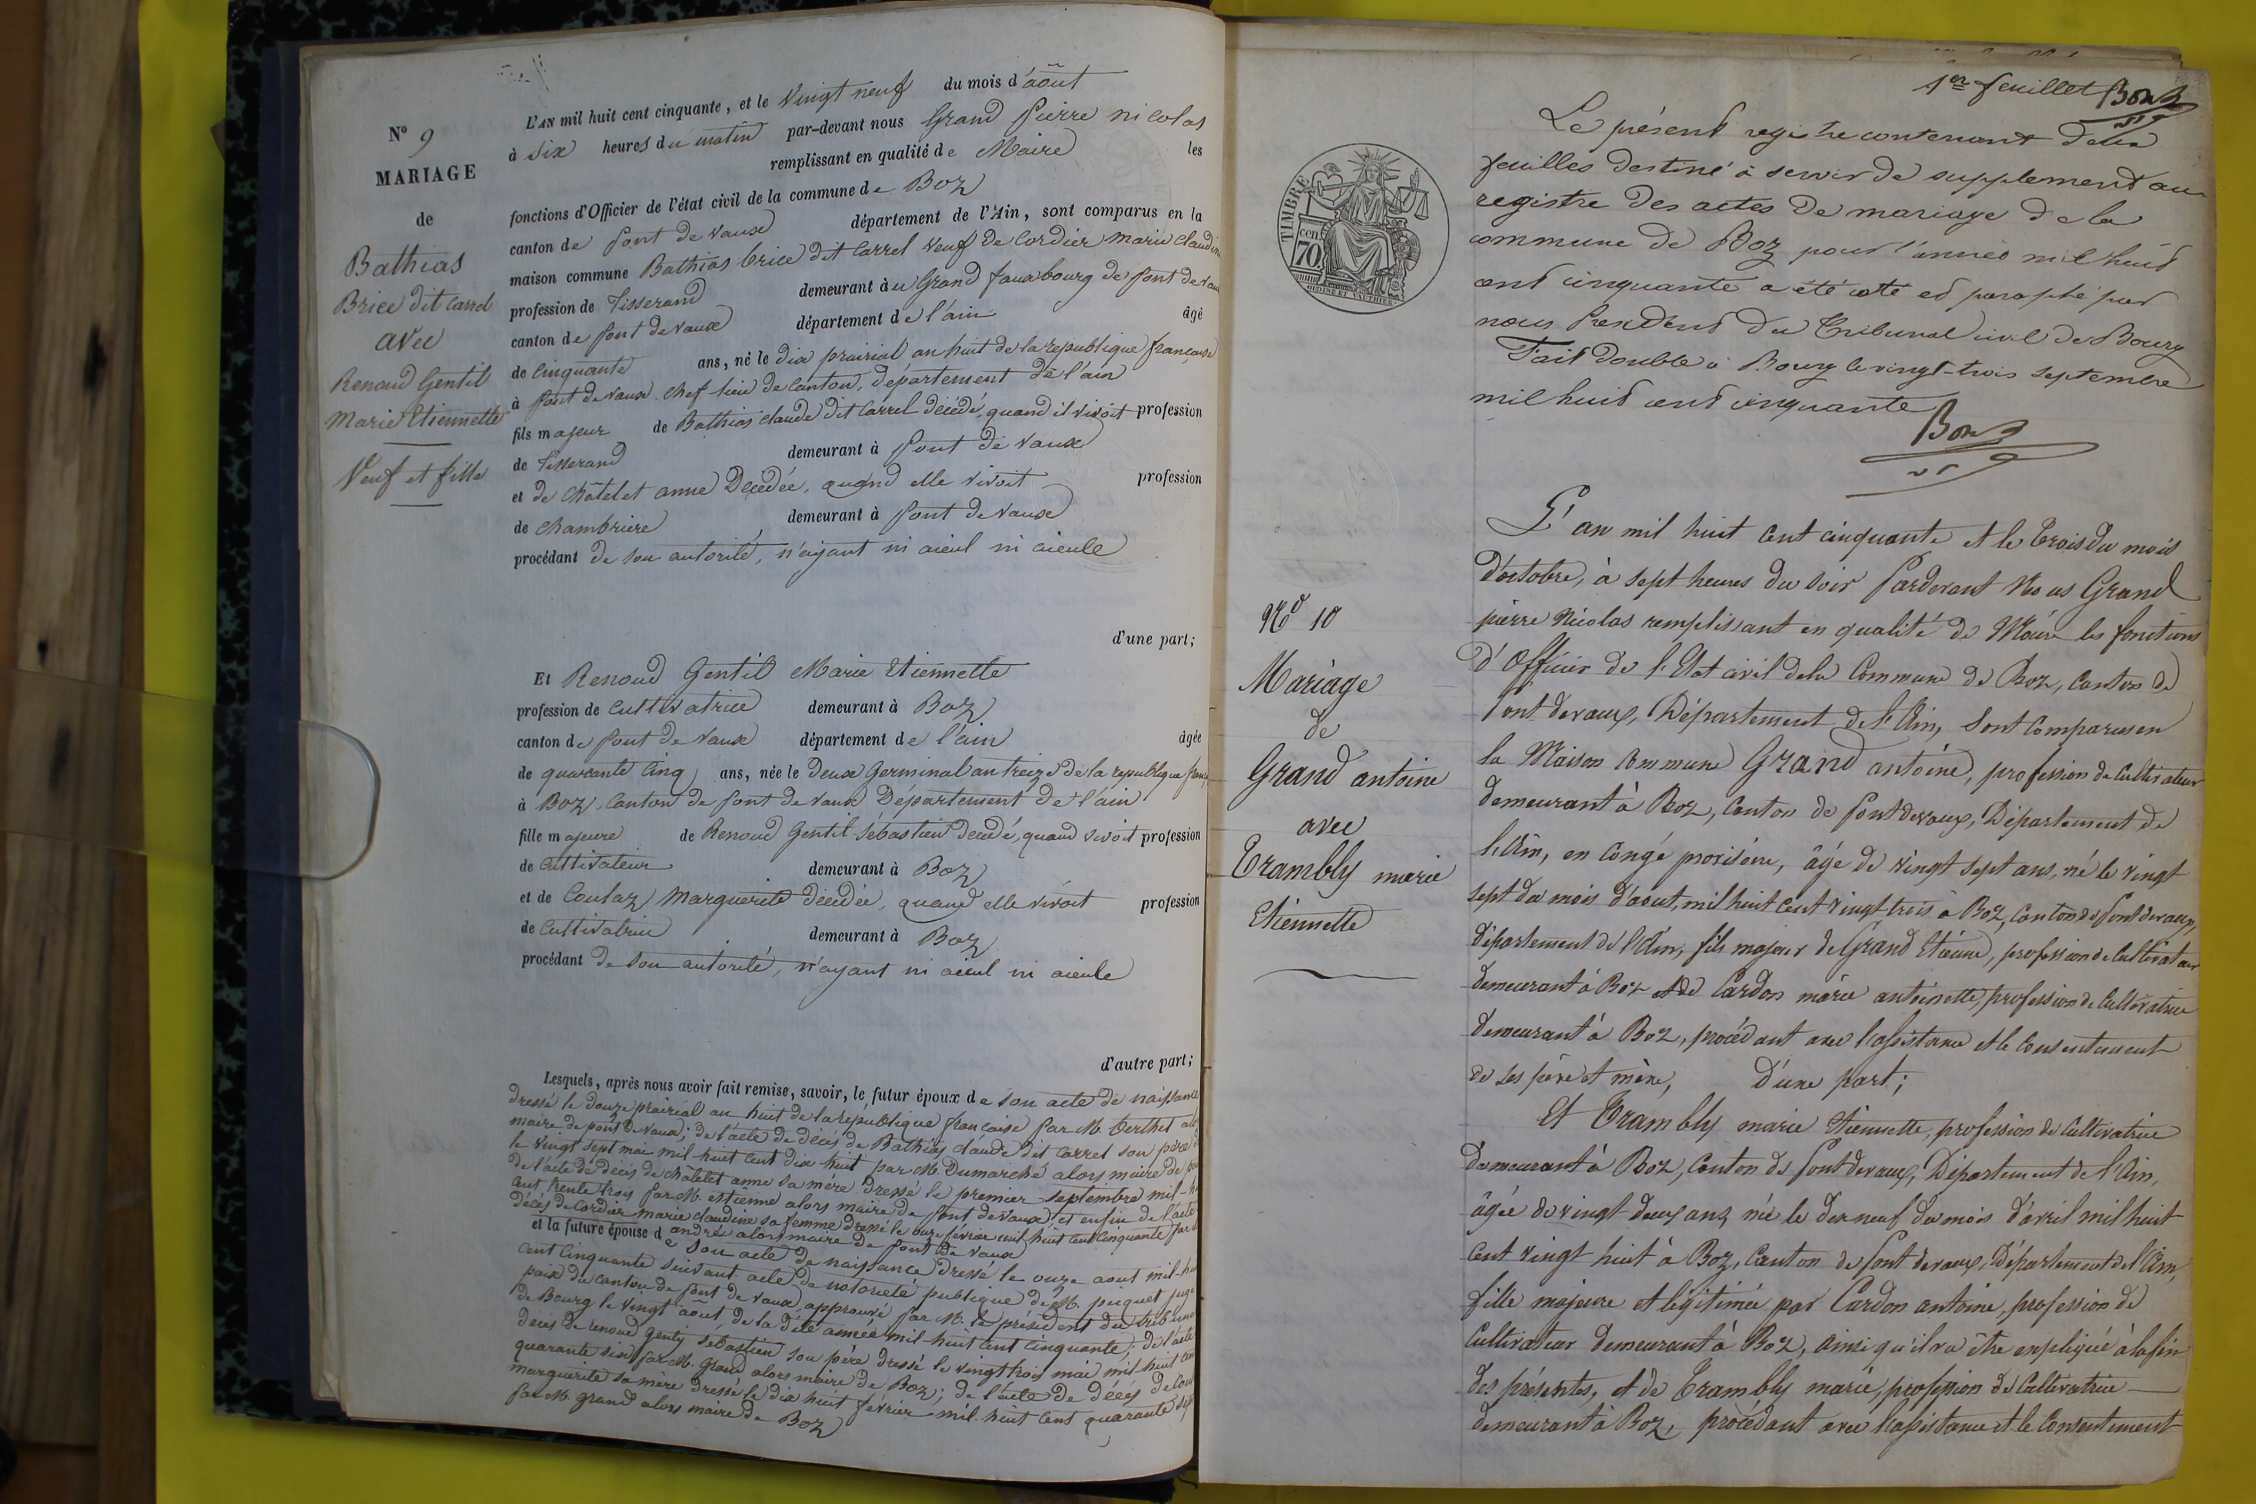 N° 9
MARIAGE
de
Bathias
Brice dit Carrel
avec
Renoud Gentil
Marie Etiennette
Veuf et fille
L'AN mil huit cent cinquante, et le vingt neuf du mois d'août
à six heures du matin par-devant nous Grand pierre nicolas
remplissant en qualité de Maire les
fonctions d'Officier de l'état civil de la commune de Boz
canton de pont de vaux département de l'Ain, sont comparus en la
maison commune Bathias brice dit Carrel veuf de Cordier marie claudine
profession de tisserand demeurant au Grand fauxbourg de pont de vaux
canton de pont de vaux département de l'ain âgé
de cinquante ans, né le dix prairial an huit de la republique française
à pont de vaux chef lieu de canton, département de l'ain
fils majeur de Bathias claude dit Carrel décédé, quand il vivoit profession
de tisserand demeurant à pont de vaux
et de châtelet anne Décédée, quand elle vivoit profession
de chambriere demeurant à pont de vaux
procédant de son autorité, n'ayant ni aieul ni aieule
d'une part;
Et Renoud Gentil Marie Etiennette
profession de cultivatrice demeurant à Boz
canton de pont de vaux département de l'ain âgée
de quarante cinq ans, née le deux Germinal an treize de la republique
à Boz canton de pont de vaux Département de l'ain
fille majeure de Renoud Gentil Sébastien décédé, quand vivoit profession
de cultivateur demeurant à Boz
et de Coulaz Marguerite décédée, quand elle vivoit profession
de cultivatrice demeurant à Boz
procédant de son autorité, n'ayant ni aieul ni aieule
d'autre part;
Lesquels, après nous avoir fait remise, savoir, le futur époux de son acte de naissance
dressé le douze prairial an huit de la république française par M. Berthet
maire de pont de vaux; de l'acte de décès de Bathias claude dit Carrel son père
le vingt sept mai mil huit cent dix huit par M. Dumarché alors maire de
de l'acte de décès de châtelet anne sa mère dressé le premier septembre mil
cent trente trois par M. estienne alors maire de pont de vaux; et enfin de l'acte
décès de Cordier marie claudine sa femme dressé le onze février mil huit cent cinquante par
andré alors maire de pont de vaux
et la future épouse de son acte de naissance dressé le onze aout mil
cent cinquante suivant acte de notoriété publique de M. picquet juge
paix du canton de pont de vaux, approuvé par M. le président du
de Bourg le vingt août de la dite année mil huit cent cinquante; de l'acte
deces de renoud gentil sébastien son père dressé le vingt trois mai mil huit cent
quarante six par M. Grand alors maire de Boz; de l'acte de décès de
marguerite sa mère dressé le dix huit fevrier mil huit cent quarante sept
par M. grand alors maire de Boz
1er feuillet
TIMBRE
70
Le présent registre contenant deux
feuilles destiné à servir de supplement au
registre des actes de mariage de la
commune de Boz pour l'année mil huit
cent cinquante a été coté et paraphé par
nous President du Tribunal civil de Bourg
Fait double à Bourg le vingt-trois septembre
mil huit cent cinquante
No 10
Mariage
de
Grand antoine
avec
Trambly marie
Etiennette
L'an mil huit cent cinquante et le trois du mois
d'octobre, à sept heures du soir Pardevant Nous Grand
pierre Nicolas remplissant en qualité de Maire les fonctions
d'Officier de l'Etat civil de la Commune de Boz, Canton de
Pont devaux, Département de l'Ain, Sont Comparus en
la Maison Commune Grand antoine, profession de Cultivateur
demeurant à Boz, Canton de Pont devaux, Département de
l'Ain, en Congé provisoire, âgé de vingt sept ans, né le vingt
sept du mois d'aout, mil huit cent vingt trois à Boz, Canton de Pont devaux,
département de l'Ain, fils majeur de Grand Etienne, profession de Cultivateur
demeurant à Boz et de Cardon marie antoinette, profession de Cultivatrice
demeurant à Boz, procédant avec l'assistance et le Consentement
de ses père et mère, D'une part;
Et Trambly marie Etiennette, profession de Cultivatrice
demeurant à Boz, Canton de Pont devaux, Département de l'Ain,
âgée de vingt deux ans, née le dix neuf du mois d'avril mil huit
cent vingt huit à Boz, Canton de Pont devaux, Département de l'Ain,
fille majeure et légitimée par Cardon antoine, profession de
Cultivateur demeurant à Boz, ainsi qu'il va être expliqué à la fin
des présentes, et de Trambly marie, profession de Cultivatrice
demeurant à Boz, procédant avec l'assistance et le Consentement